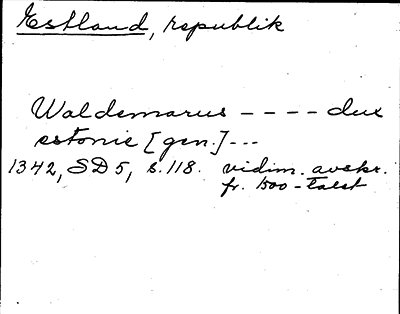 Estland, republik
Waldemarus - - - - dux
estonie [gen.] - - -
1342, SD 5, s. 118. vidim. avskr.
fr. 1500-talet